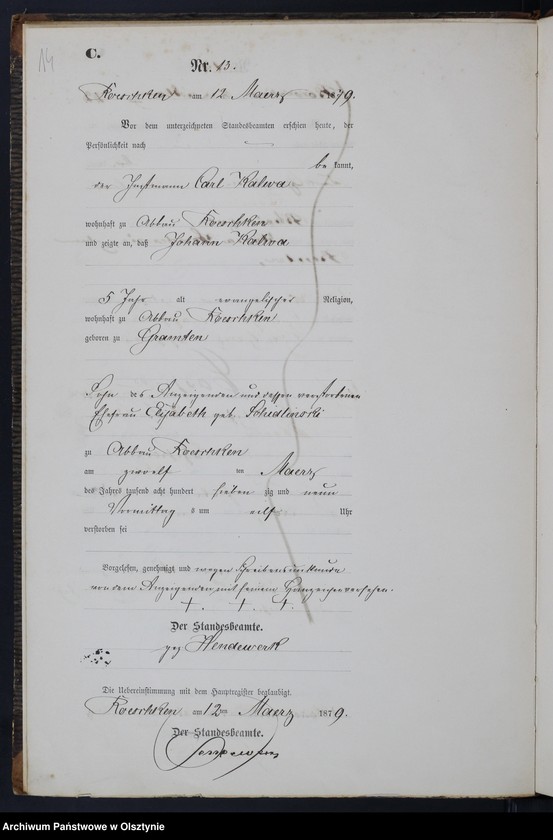 14
C.
Nr. 13.
Koeschken am 12 Maerz 1879.
Vor dem unterzeichneten Standesbeamten erschien heute, der
Persönlichkeit nach
be kannt,
der Carl Kalwa
wohnhaft zu Abbau Koeschken
und zeigte an, daß Johann Kalwa
5 Jahr alt evangelischer Religion,
wohnhaft zu Abbau Koeschken
geboren zu Gramten
Sohn des Anzeigenden und dessen verstorbenen
Ehefrau Elisabeth geb.
zu Abbau Koeschken
am zwoelf ten Maerz
des Jahres tausend acht hundert sieben zig und neun
Vormittag s um eilf Uhr
verstorben sei
Vorgelesen, genehmigt und wegen Schreibensunkunde
von dem Anzeigenden mit seinem Handzeichen versehen.
+. +. +.
Der Standesbeamte.
gez Hendewerk
Die Uebereinstimmung mit dem Hauptregister beglaubigt.
Koeschken am 12ten Maerz 1879.
Der Standesbeamte.
Archiwum Państwowe w Olsztynie